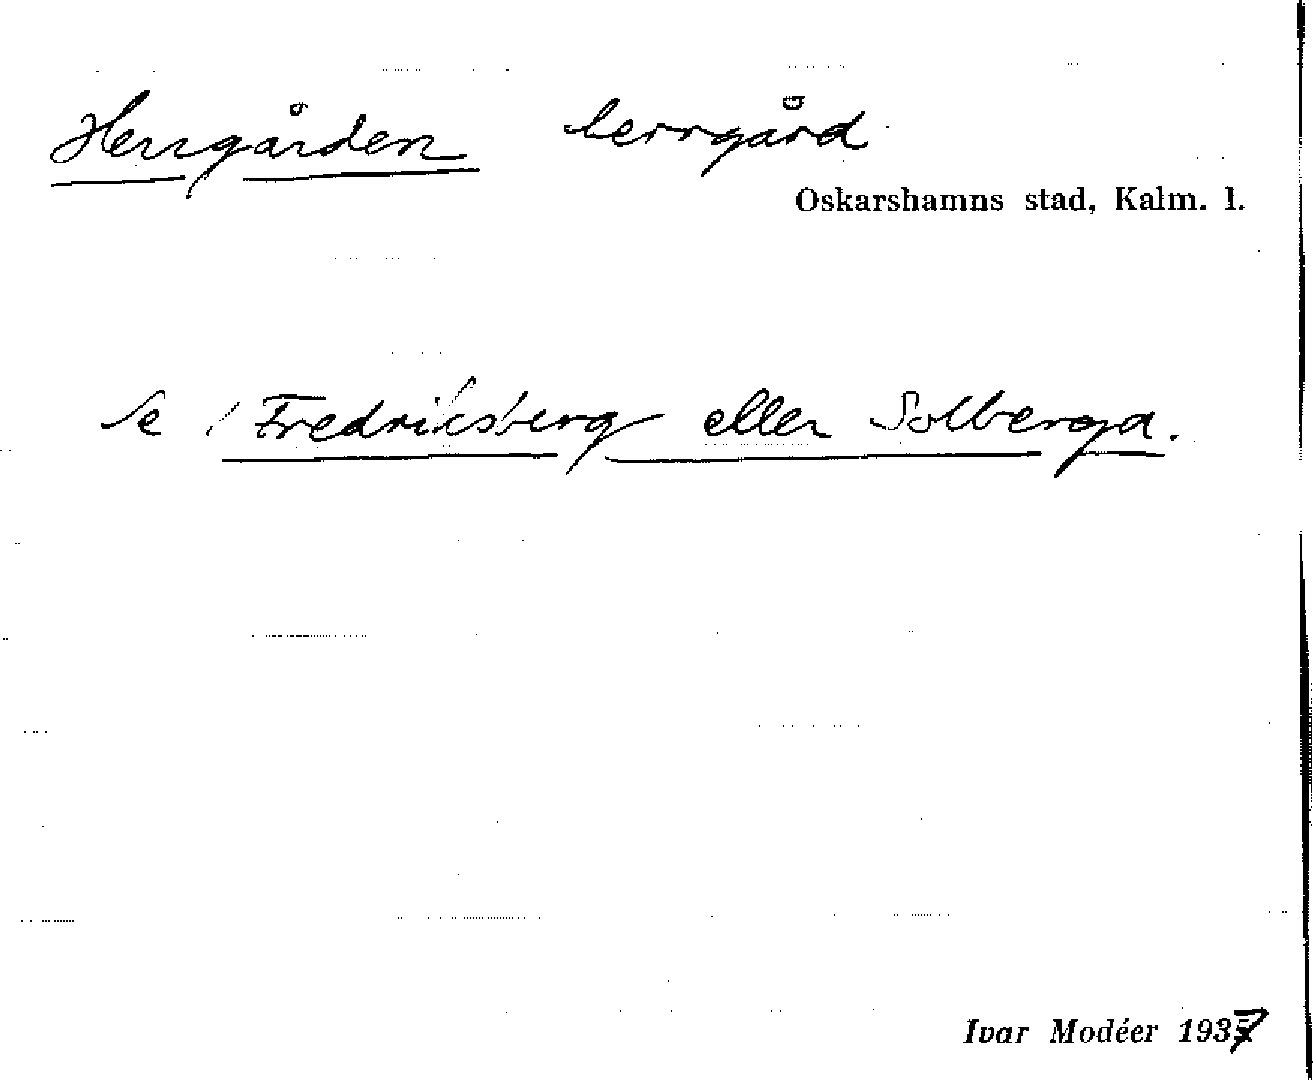 Herrgården herrgård
Oskarshamns stad, Kalm. l.
se Fredriksberg eller Solberga.
Ivar Modéer 1937